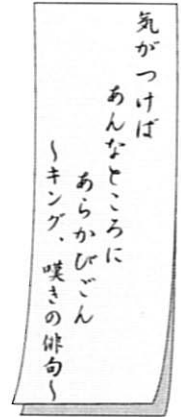 気がつけば
あんなところに
あらかびごん
～キング、嘆きの俳句～